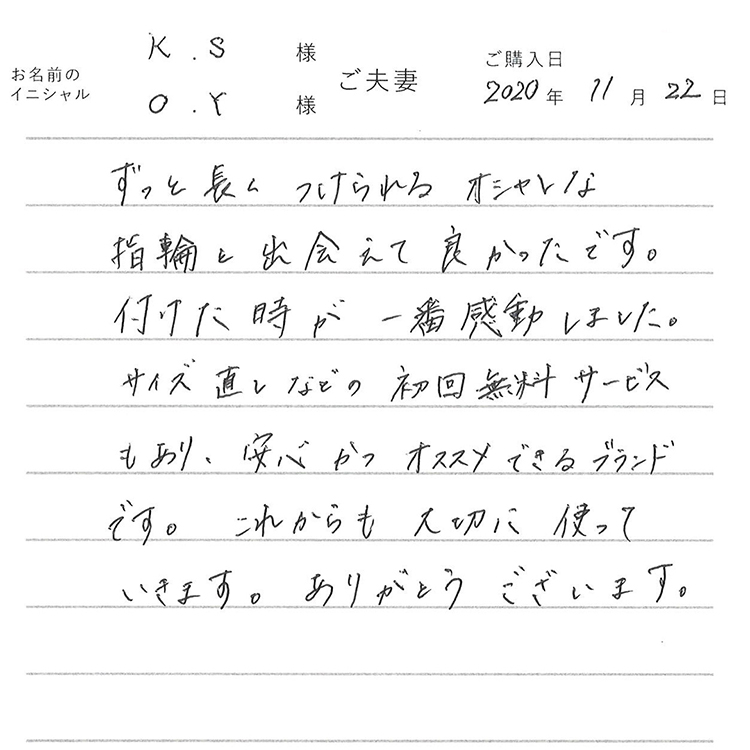 K.S 様
お名前の
イニシャル
O.Y 様
ご夫妻
ご購入日
2020年 11月 22日
ずっと長く つけられる オシャレな
指輪と出会えて良かったです。
付けた時が 一番感動しました。
サイズ直しなどの 初回無料サービス
もあり、安心かつ オススメできるブランド
です。これからも 大切に 使って
いきます。ありがとう ございます。